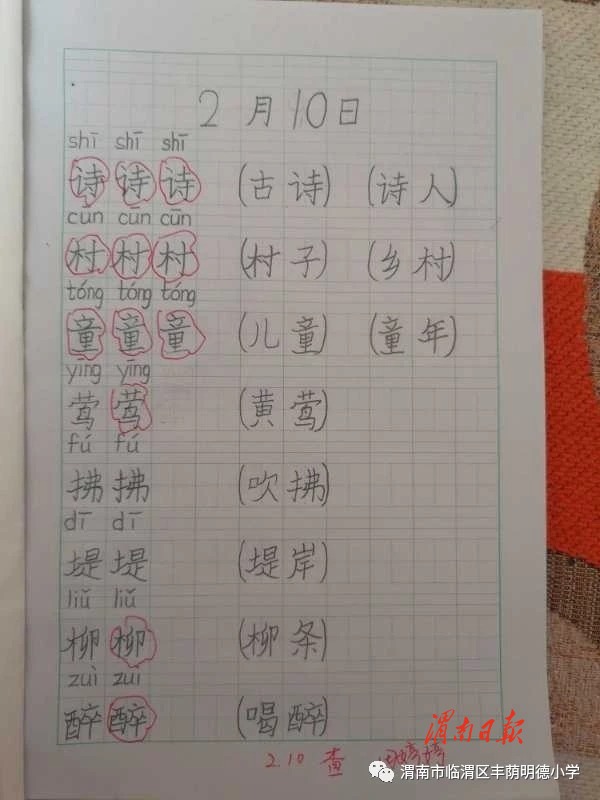 2月10日
shī shī shī
诗诗诗 (古诗) (诗人)
cūn cūn cūn
村村村 (村子) (乡村)
tóng tóng tóng
童童童 (儿童) (童年)
yīng yīng
莺莺 (黄莺)
fú fú
拂拂 (吹拂)
dī dī
堤堤 (堤岸)
liǔ liǔ
柳柳 (柳条)
zuì zuì
醉醉 (喝醉)
渭南日报
2.10 查
渭南市临渭区丰荫明德小学